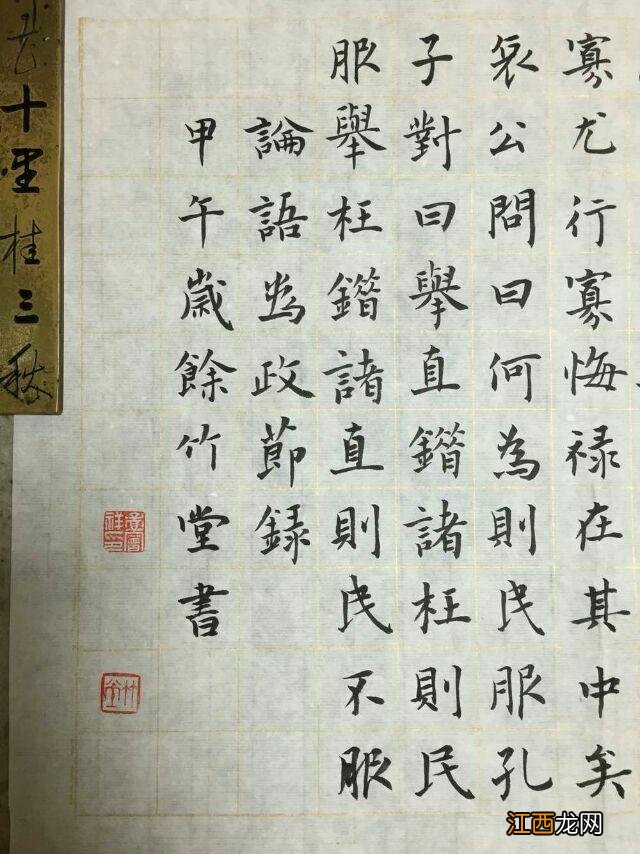 寡尤行寡悔禄在其中矣
哀公問曰何為則民服孔
子對曰舉直錯諸枉則民
服舉枉錯諸直則民不服
論語為政節録
甲午歲餘竹堂書
竹堂
十里桂三秋
江西龙网